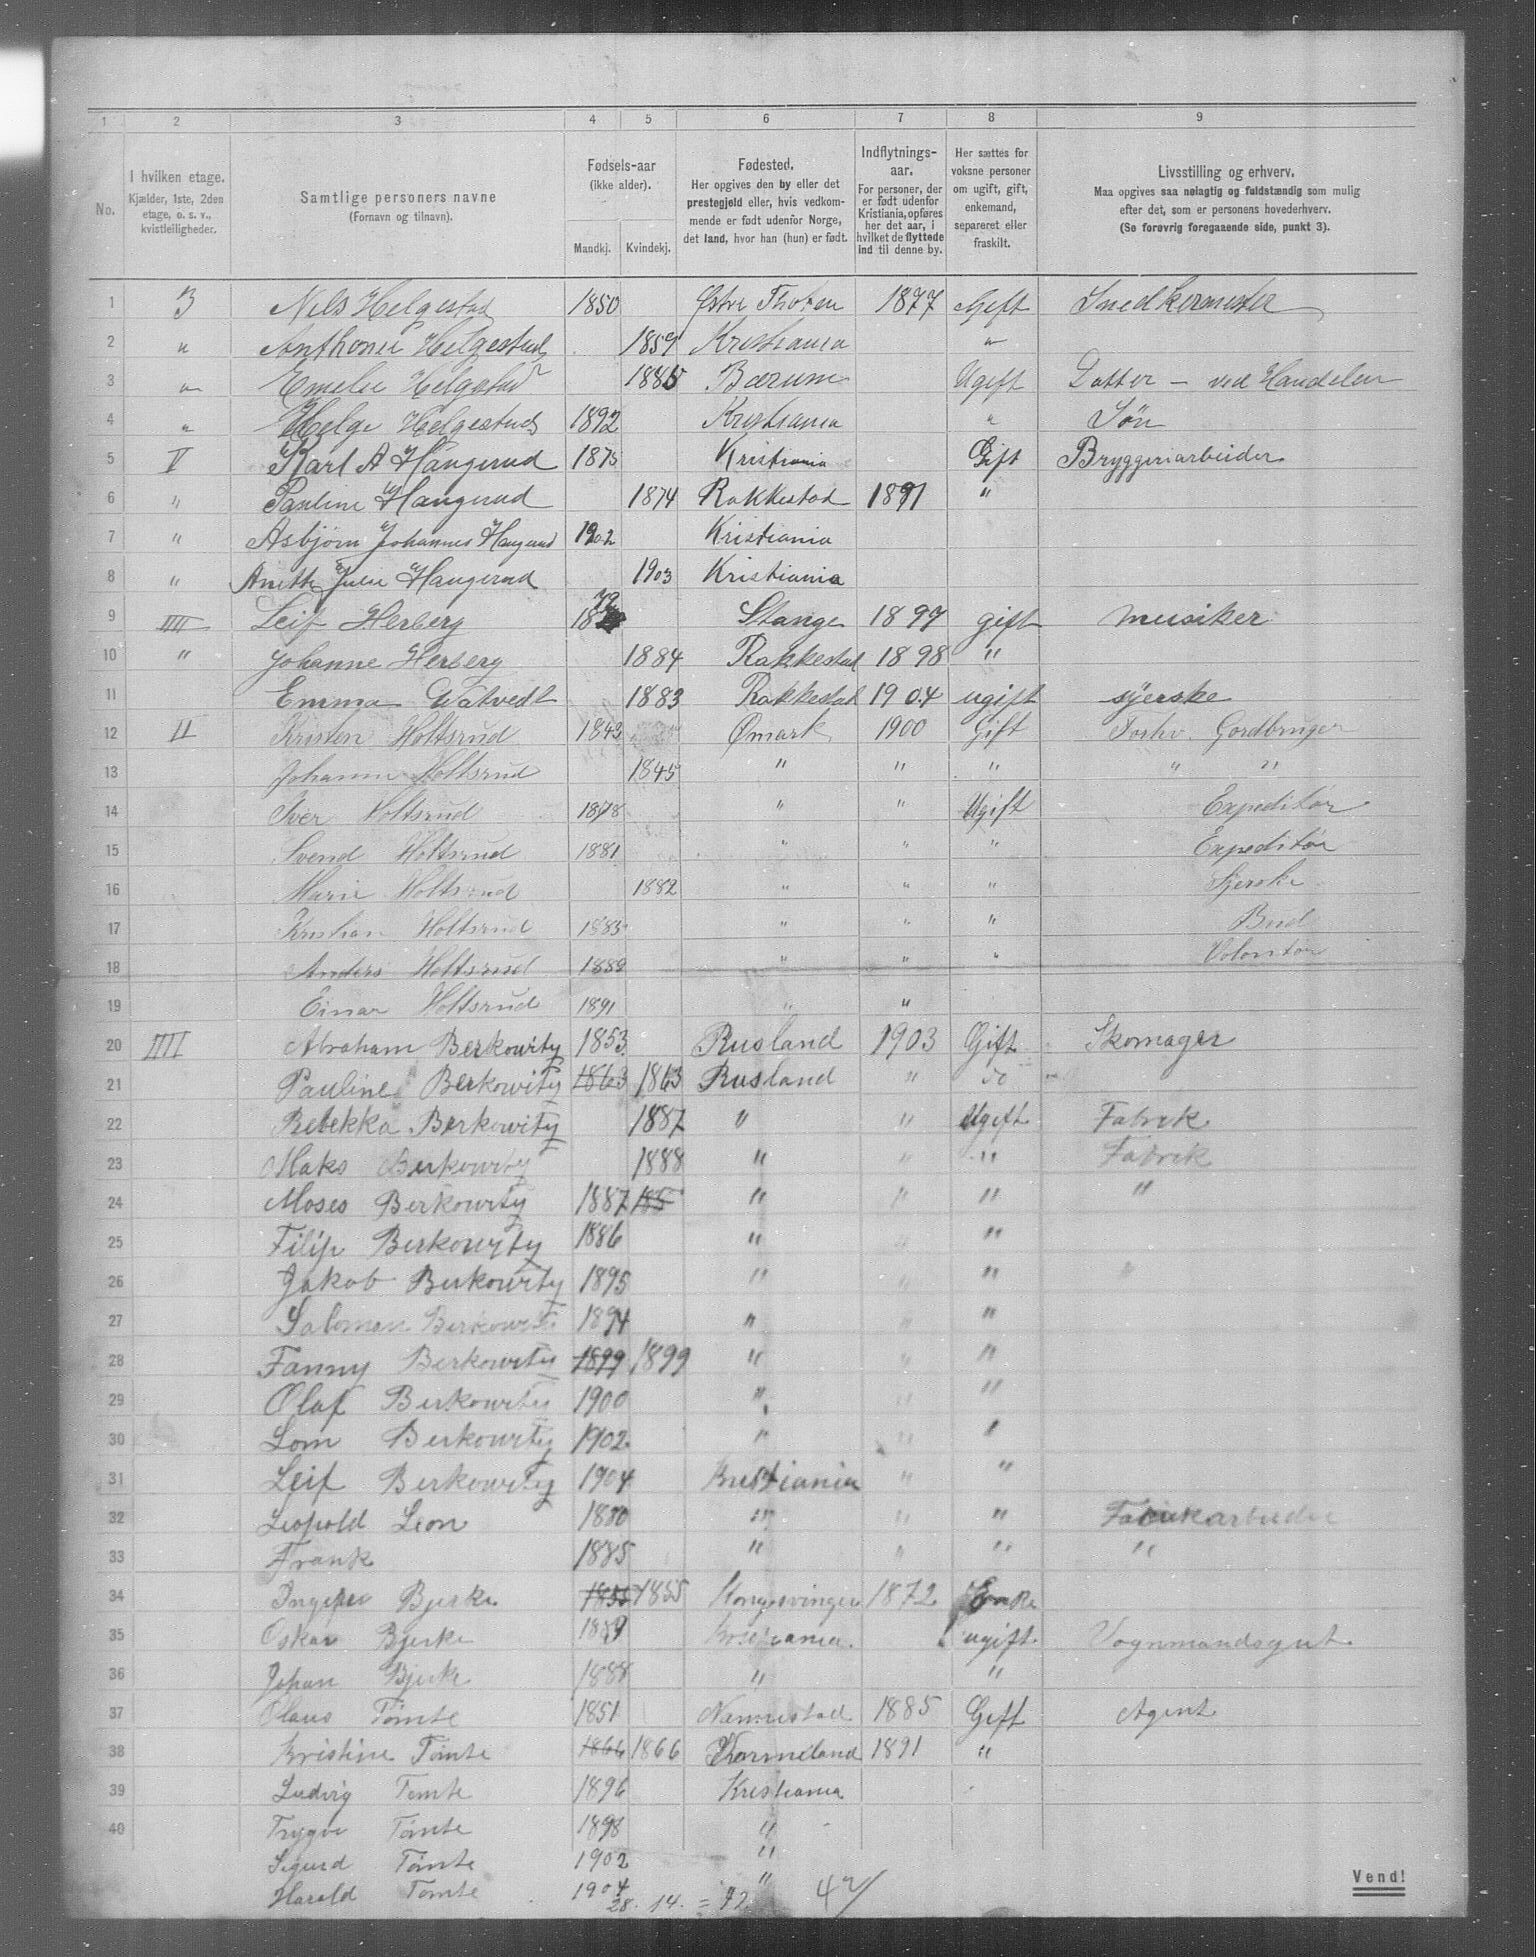 1 2 3 4 5 6 7 8 9
No. I hvilken etage. Kjælder, 1ste, 2den etage, o. s. v., kvistleiligheder. Samtlige personers navne (Fornavn og tilnavn). Fødsels-aar (ikke alder). Mandkj. Kvindekj. Fødested. Her opgives den by eller det prestegjeld eller, hvis vedkommende er født udenfor Norge, det land, hvor han (hun) er født. Indflytnings-aar. For personer, der er født udenfor Kristiania, opføres her det aar, i hvilket de flyttede ind til denne by. Her sættes for voksne personer om ugift, gift, enkemand, separeret eller fraskilt. Livsstilling og erhverv. Maa opgives saa nølagtig og fuldstændig som mulig efter det, som er personens hovederhverv. (Se forøvrig foregaaende side, punkt 3).
1 3 Nils Helgestad 1850 Østre Thoten 1877 Gift Snedkermester
2 " Anthonie Helgestad 1859 Kristiania "
3 " Emelie Helgestad 1885 Bærum Ugift Datter - ved Handelen
4 " Helge Helgestad 1892 Kristiania " Søn
5 V Karl A Haugerud 1875 Kristiania Gift Bryggeriarbeider
6 " Pauline Haugerud 1874 Rakkestad 1891 "
7 " Asbjørn Johannes Haugerud 1902 Kristiania
8 " Anette Julie Haugerud 1903 Kristiania
9 IIII Leif Herberg 1872 Stange 1897 gift musiker
10 " Johanne Herberg 1884 Rakkestad 1898 "
11 Emma Watvedt 1883 Rakkestad 1904 ugift syerske
12 II Kristen Holtsrud 1843 Ømark 1900 Gift Forhv. Gordbruger
13 Johanne Holtsrud 1845 " " " " "
14 Iver Holtsrud 1878 " " Ugift Expeditør
15 Svend Holtsrud 1881 " " " Expeditør
16 Marie Holtsrud 1882 " " " Syerske
17 Kristian Holtsrud 1883 " " " Bud
18 Anders Holtsrud 1889 " " " Volontør
19 Einar Holtsrud 1891 " "
20 IIII Abraham Berkowitz 1853 Rusland 1903 Gift Skomager
21 Pauline Berkowitz 1863 1863 Rusland " do
22 Rebekka Berkowitz 1887 " " Ugift Fabrik
23 Maks Berkowitz 1888 " " " Fabrik
24 Moses Berkowitz 1887 185 " " " "
25 Filip Berkowitz 1886 " " "
26 Jakob Berkowitz 1895 " " " "
27 Salomon Berkowitz 1894 " " "
28 Fanny Berkowitz 1899 1899 " " "
29 Olaf Berkowitz 1900 " " "
30 Lom Berkowitz 1902 " " "
31 Leif Berkowitz 1904 Kristiania " "
32 Leopold Leon 1880 " " " Fabrikarbeider
33 Frank 1885 " " " "
34 Bjerke 1855 1855 Kongsvinger 1872 Enke
35 Oskar Bjerke Kristiania ugift Vognmandsgut
36 Johan Bjerke 1888 " "
37 Olaus Tømte 1851 Nannestad 1885 Gift Agent
38 Kristine Tømte 1866 1866 1891 "
39 Ludvig Tømte 1896 Kristiania
40 Trygve Tømte 1898 "
Sigurd Tømte 1902 "
Harald Tømte 1904 "
28. 14. = 42 42
Vend!